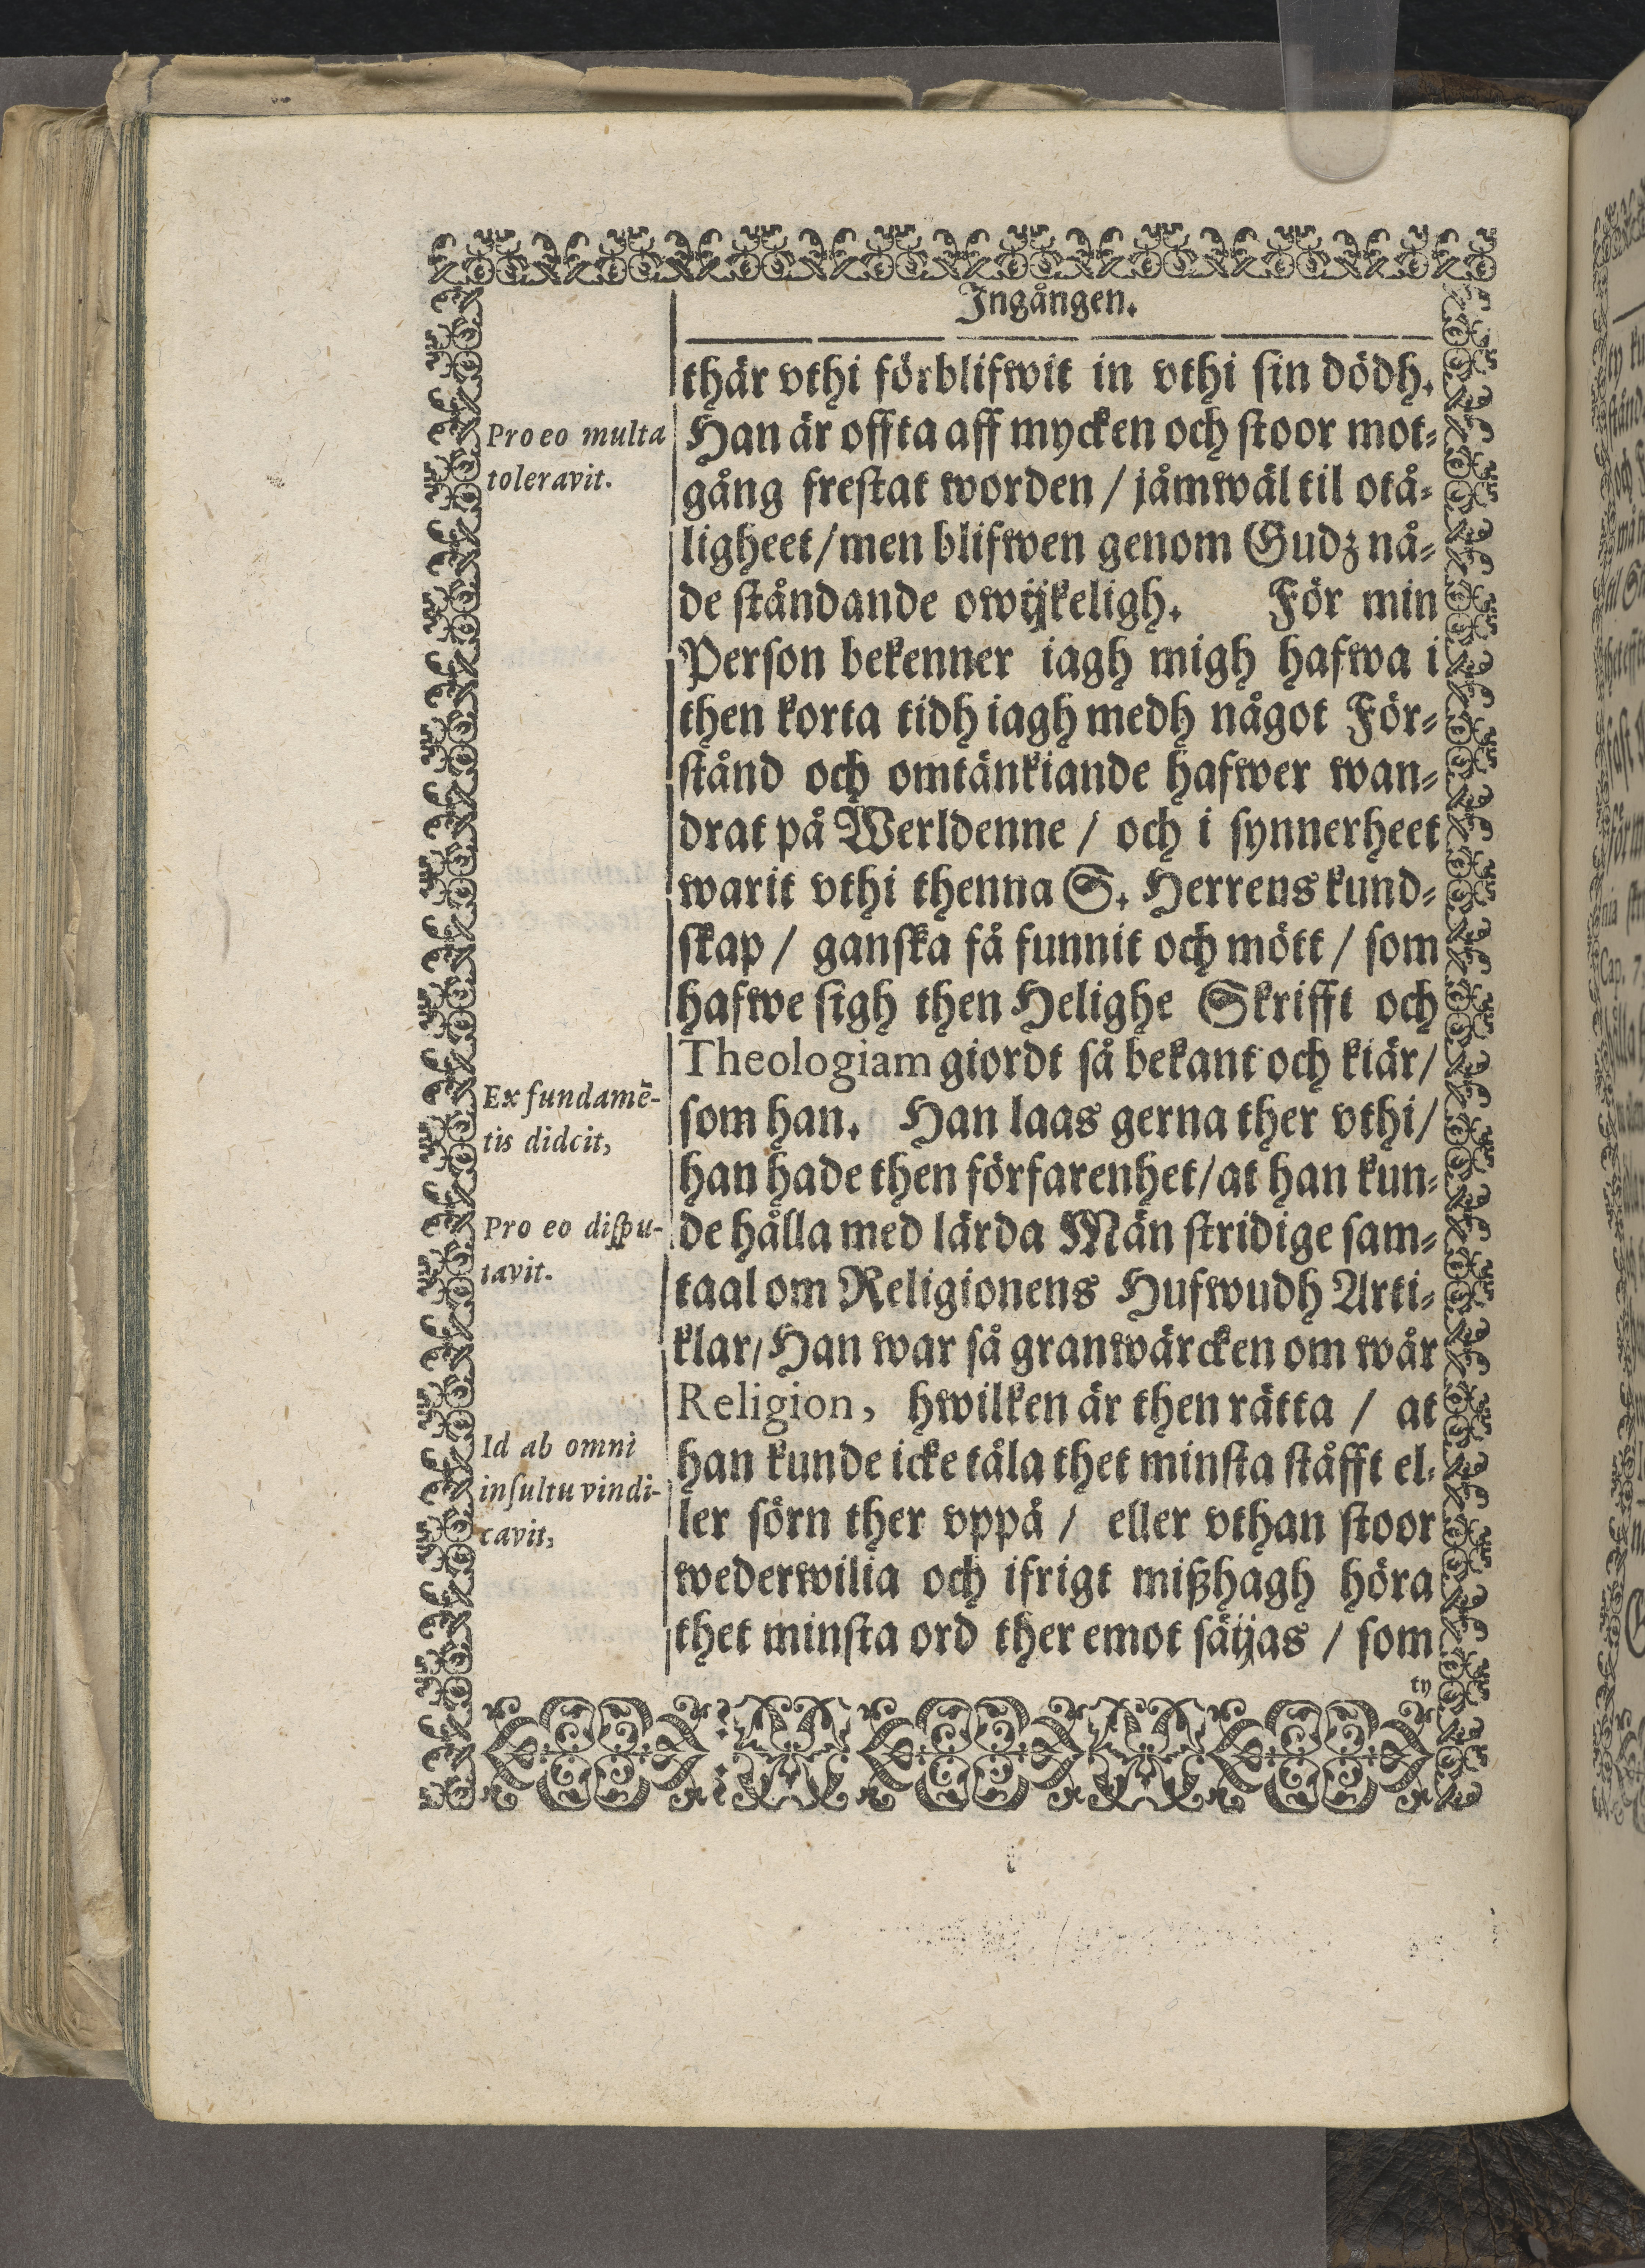 Ingången.
thär vthi förblifwit in vthi sin dödh.
Han är offta aff mycken och stoor mot-
gång frestat worden / jåmwäl til otå-
ligheet / men blifwen genom Gudz nå-
de ståndande owijkeligh. För min
Person bekenner iagh migh hafwa i
then korta tidh iagh medh något För-
stånd och omtänkiande hafwer wan-
drat på Werldenne / och i synnerheet
warit vthi thenna S. Herrens kund-
skap / ganska få funnit och mött / som
hafwe sigh then Helighe Skrifft och
Theologiam giordt så bekant och kiär /
som han. Han laas gerna ther vthi /
han hade then förfarenhet / at han kun-
de hålla med lärda Män stridige sam-
taal om Religionens Hufwudh Arti-
klar / Han war så granwärcken om wår
Religion, hwilken är then rätta / at
han kunde icke tåla thet minsta ståfft el-
ler sörn ther vppå / eller vthan stoor
wederwilia och ifrigt mißhagh höra
thet minsta ord ther emot säijas / som
ty
Pro eo multa
toleravit.
Ex fundamē-
tis didcit,
Pro eo dispu-
tavit.
Id ab omni
insultu vindi-
cavit,